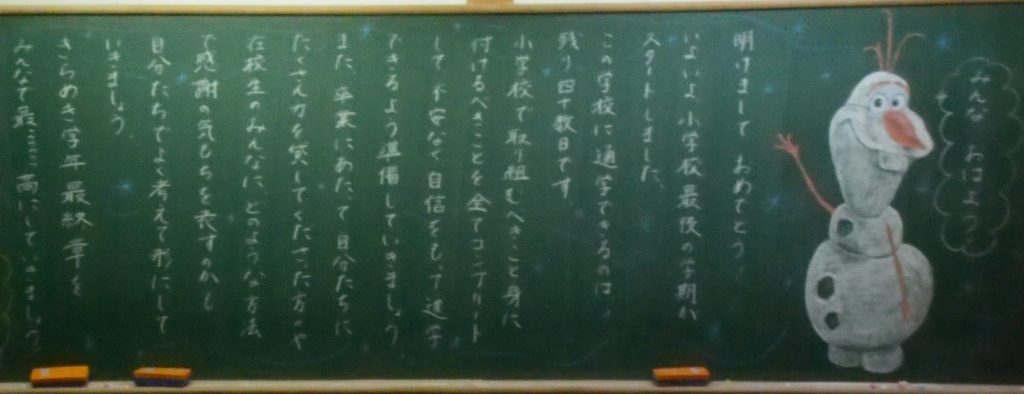 みんな
おはよう。
明けまして おめでとう。
いよいよ小学校最後の学期が
スタートしました。
この学校に通学できるのは
残り四十数日です。
小学校で取り組むべきこと身に
付けるべきことを全てコンプリート
して、不安なく自信をもって進学
できるよう準備していきましょう
また、卒業にあたって自分たちに
たくさん力を貸してくださった方々や
在校生のみんなに、どのような方法
で感謝の気もちを表すのかも
自分たちでよく考えて形にして
いきましょう。
きらめき学年最終章を
みんなで最……高にしていきましょう